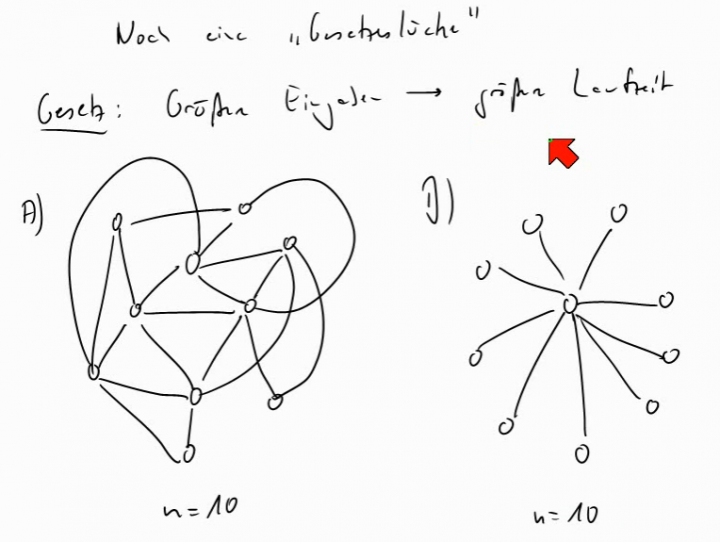 Noch eine „Gesetzeslücke"
Gesetz: Größere Eingaben → größere Laufzeit
A)
B)
n=10
n=10